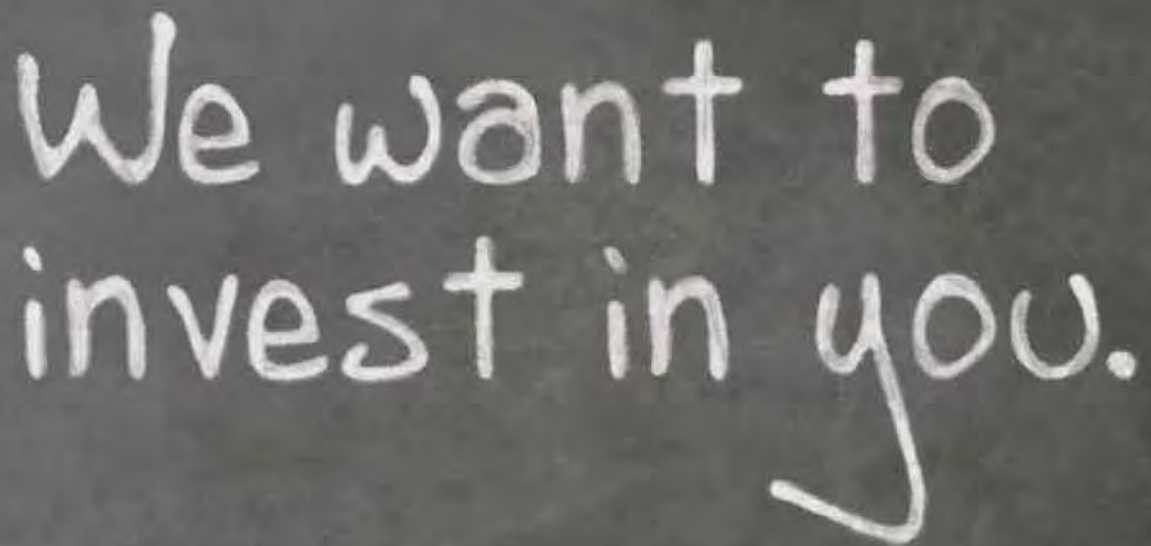 We want to
invest in you.